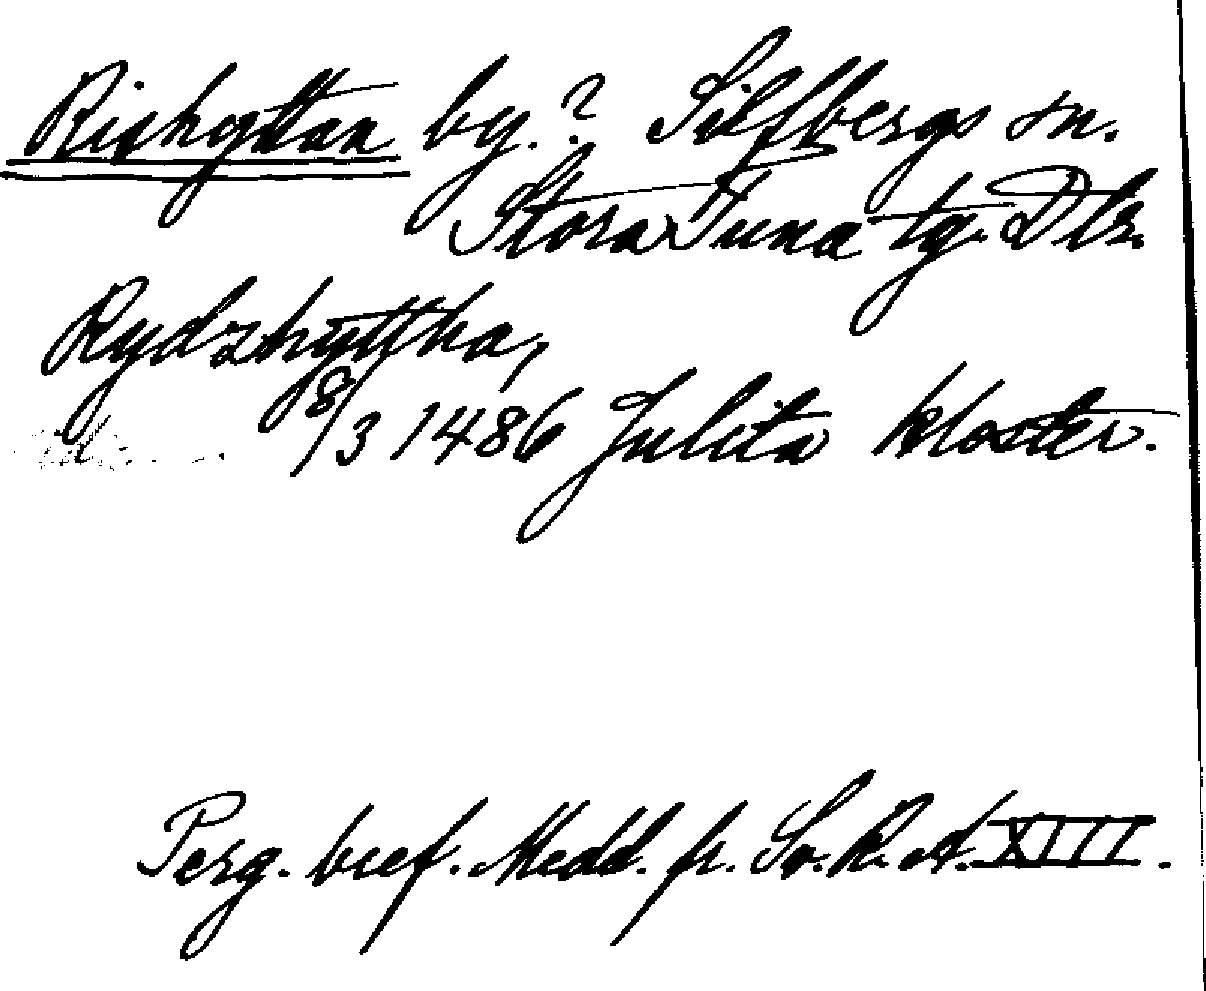 Rishyttan by.? Silfbergs sn.
Stora Tuna tg. Dlr.
Rydzhyttha,
8/3 1486 Julita kloster.
Perg. bref. Medd. fr. Sv. R. A. XIII.